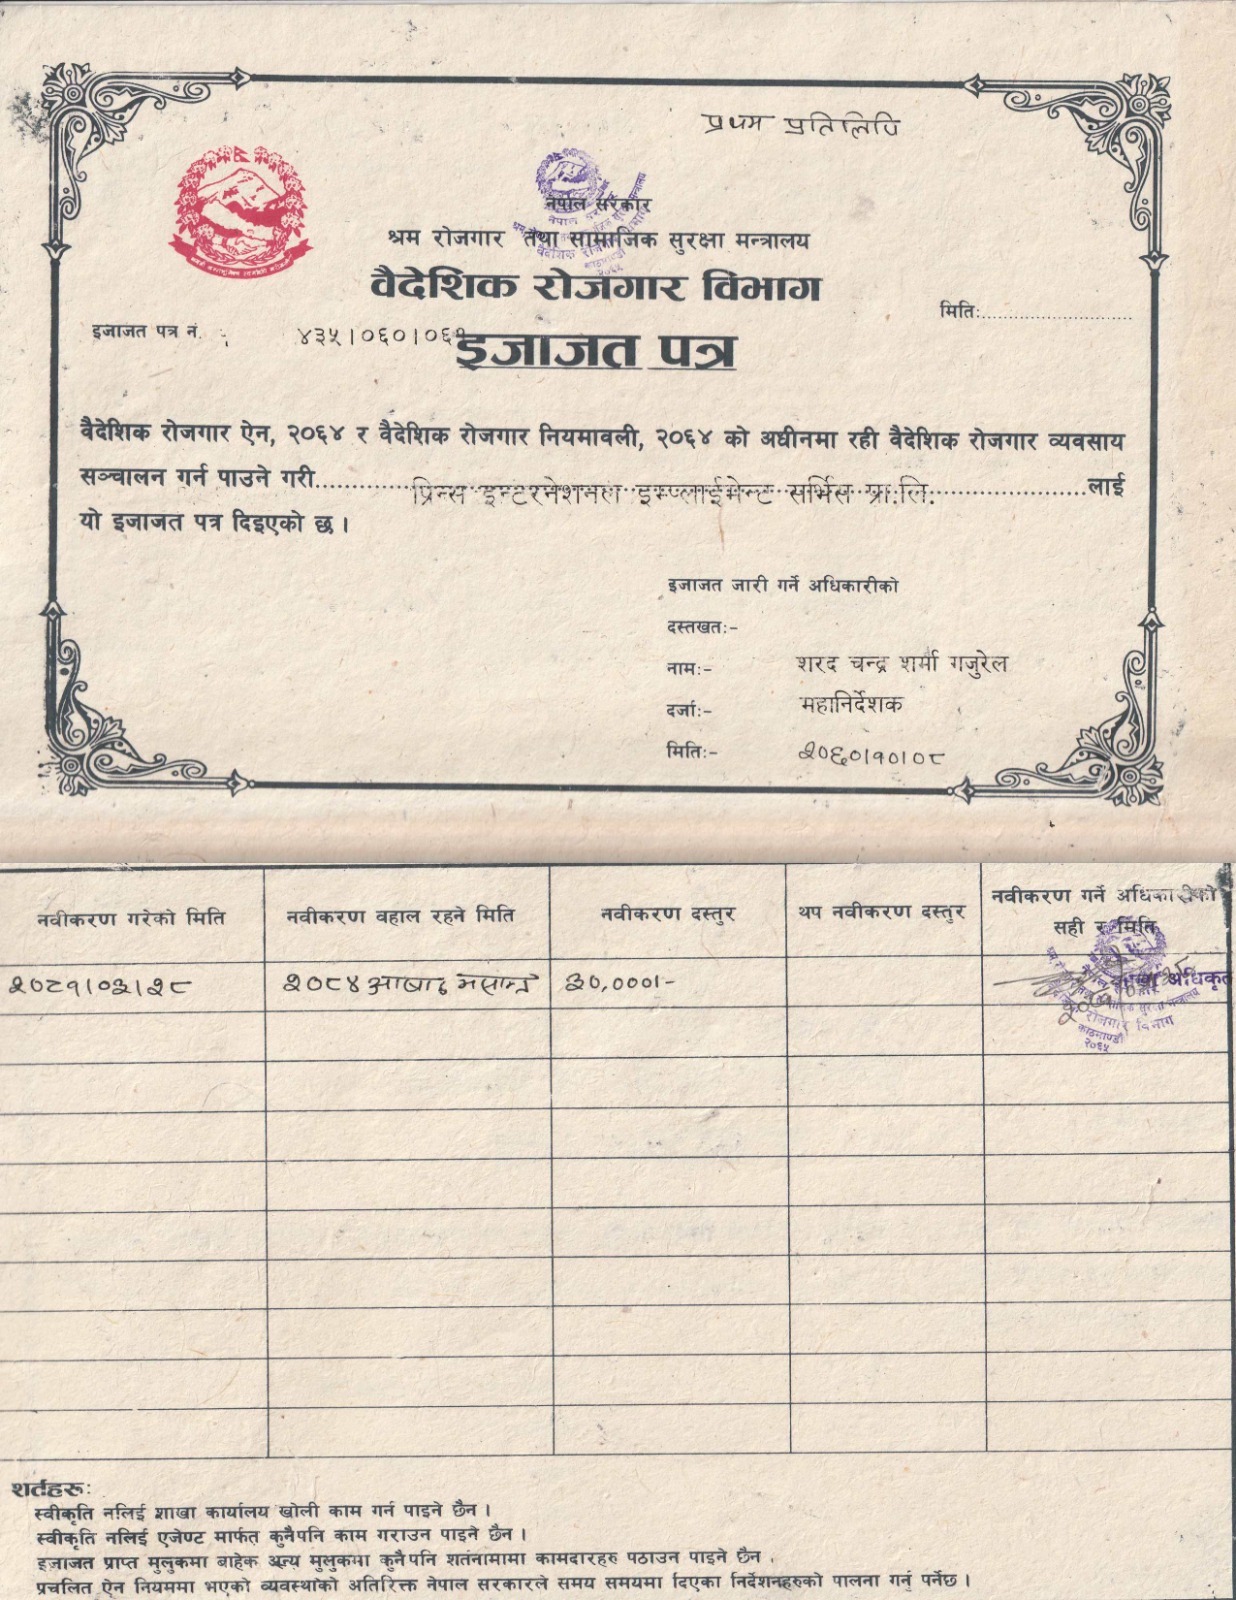 प्रथम प्रतिलिपि
नेपाल सरकार
श्रम रोजगार तथा सामाजिक सुरक्षा मन्त्रालय
वैदेशिक रोजगार विभाग
मितिः
इजाजत पत्र नं. : ४३५।०६०।०६१
इजाजत पत्र
वैदेशिक रोजगार ऐन, २०६४ र वैदेशिक रोजगार नियमावली, २०६४ को अधीनमा रही वैदेशिक रोजगार व्यवसाय
सञ्चालन गर्न पाउने गरी प्रिन्स इन्टरनेशनल इम्प्लाईमेन्ट सर्भिस प्रा.लि. लाई
यो इजाजत पत्र दिइएको छ ।
इजाजत जारी गर्ने अधिकारीको
दस्तखतः-
नामः- शरद चन्द्र शर्मा गजुरेल
दर्जाः- महानिर्देशक
मितिः- २०६०।१०।०८
नवीकरण गरेको मिति नवीकरण वहाल रहने मिति नवीकरण दस्तुर थप नवीकरण दस्तुर नवीकरण गर्ने अधिकारीको
सही र मिति
२०८१।०३।२८ २०८४ आषाढ मसान्त ३०,०००।- शाखा अधिकृत
रोजगार विभाग
काठमाण्डौं
२०६५
शर्तहरुः
स्वीकृति नलिई शाखा कार्यालय खोली काम गर्न पाइने छैन ।
स्वीकृति नलिई एजेण्ट मार्फत कुनैपनि काम गराउन पाइने छैन ।
इजाजत प्राप्त मुलुकमा बाहेक अन्य मुलुकमा कुनैपनि शर्तनामामा कामदारहरु पठाउन पाइने छैन .
प्रचलित ऐन नियममा भएको व्यवस्थाको अतिरिक्त नेपाल सरकारले समय समयमा दिएका निर्देशनहरुको पालना गर्नु पर्नेछ ।